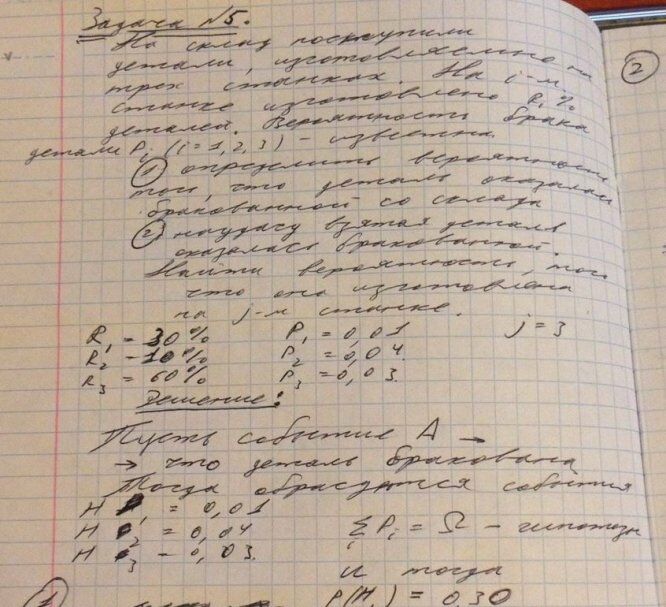 Задача №5.
На склад поступили
детали, изготовляемые на
трех станках. На i-м
станке изготовлено Ri %
деталей. Вероятность брака
детали Pi (i = 1, 2, 3) – известна.
① определить вероятность
того, что деталь оказалась
бракованной со склада
② наудачу взятая деталь
оказалась бракованной.
Найти вероятность, того
что она изготовлена
на j-м станке.
R1 = 30% P1 = 0,01 j = 3
R2 – 10% P2 = 0,04.
R3 = 60% P3 = 0,03.
Решение:
Пусть событие A →
→ что деталь бракована
Тогда образуются события
H 1 = 0,01
H 2 = 0,04 ∑ Pi = Ω – гипотезы
H 3 – 0,03. i
и тогда
① P(H1) = 0,30
②